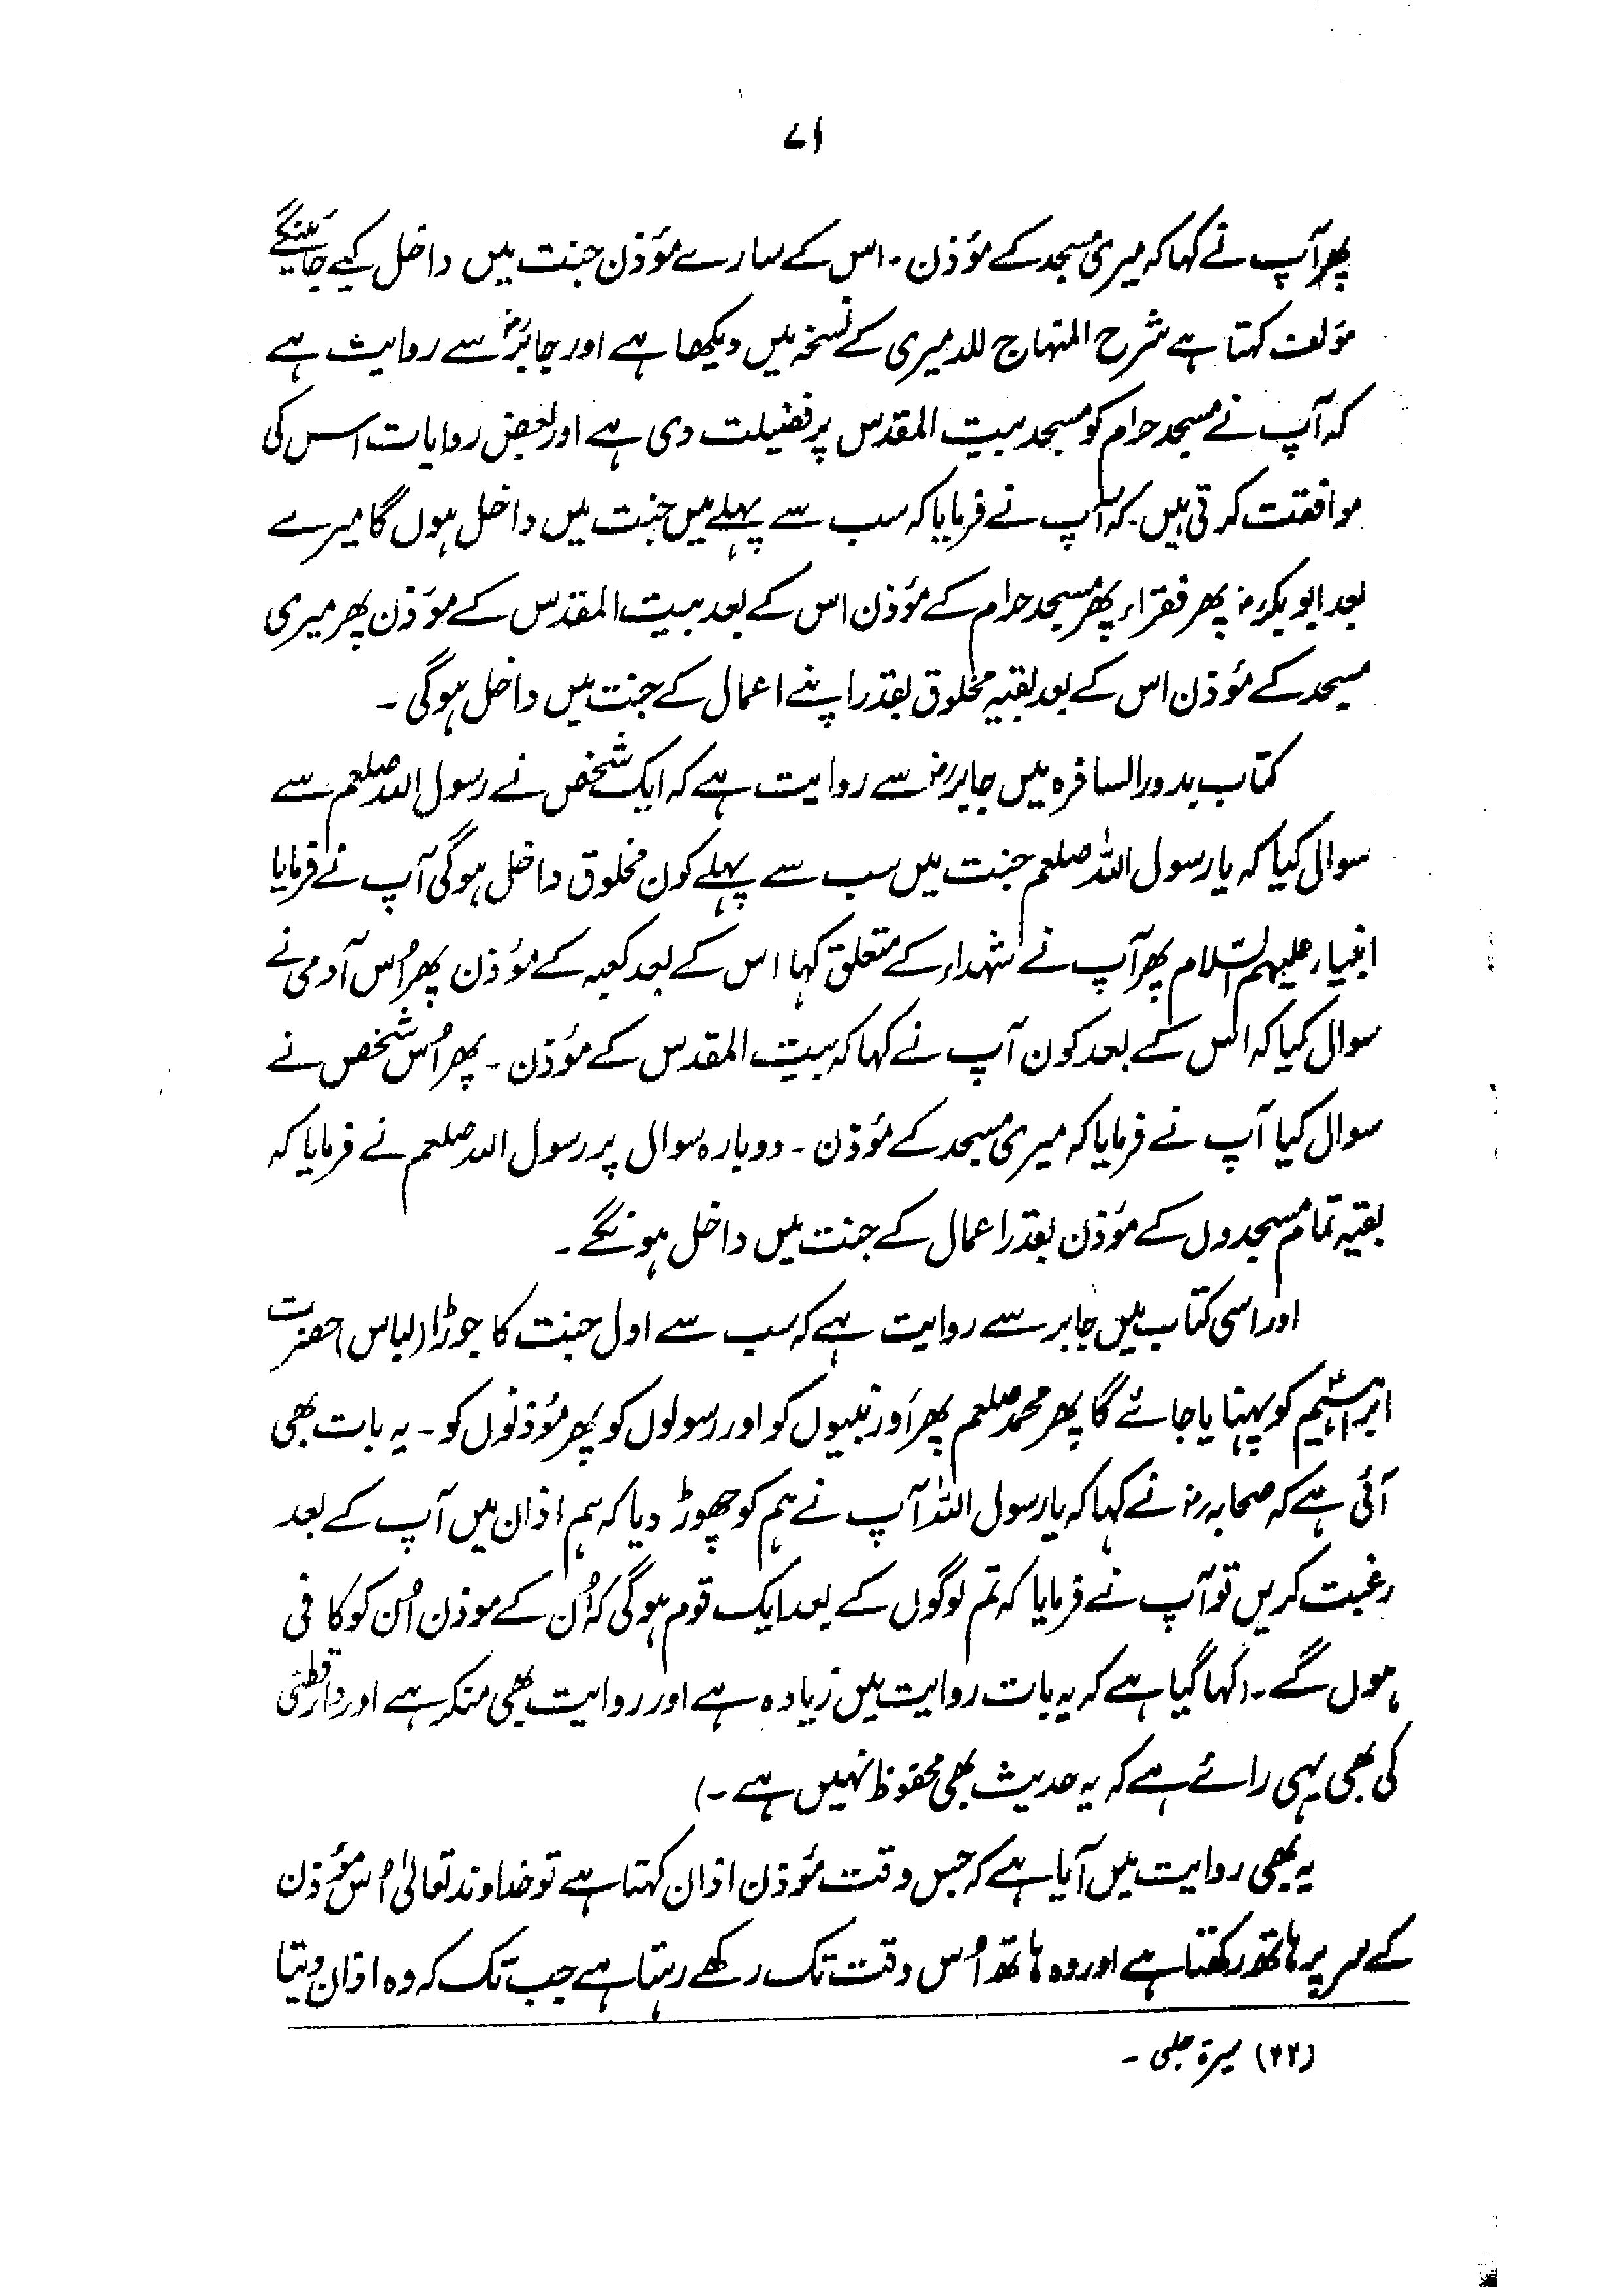 ۷۱
پھر آپ نے کہا کہ میری مسجد کے مؤذن ۔ اس کے سارے مؤذن جنت میں داخل کیے جائینگے
مؤلف کہتا ہے شرح المنہاج للدمیری کے نسخہ میں دیکھا ہے اور جابرؓ سے روایت ہے
کہ آپ نے مسجد حرام کو مسجد بیت المقدس پر فضیلت دی ہے اور بعض روایات اس کی
موافقت کرتی ہیں ۔ کہ آپ نے فرمایا کہ سب سے پہلے میں جنت میں داخل ہوں گا میرے
بعد ابوبکررض پھر فقراء پھر مسجد حرام کے مؤذن اس کے بعد بیت المقدس کے مؤذن پھر میری
مسجد کے مؤذن اس کے بعد بقیہ مخلوق بقدر اپنے اعمال کے جنت میں داخل ہوگی ۔
کتاب بدور السافرہ میں جابررض سے روایت ہے کہ ایک شخص نے رسول اللہ صلعم سے
سوال کیا کہ یا رسول اللہ صلعم جنت میں سب سے پہلے کون مخلوق داخل ہوگی آپ نے فرمایا
انبیاء علیہم السّلام پھر آپ نے شہداء کے متعلق کہا اس کے بعد کعبہ کے مؤذن پھر اُس آدمی نے
سوال کیا کہ اس کے بعد کون آپ نے کہا کہ بیت المقدس کے مؤذن ۔ پھر اُس شخص نے
سوال کیا آپ نے فرمایا کہ میری مسجد کے مؤذن ۔ دوبارہ سوال پر رسول اللہ صلعم نے فرمایا کہ
بقیہ تمام مسجدوں کے مؤذن بقدر اعمال کے جنت میں داخل ہونگے ۔
اور اسی کتاب میں جابر سے روایت ہے کہ سب سے اول جنت کا جوڑا (لباس) حضرت
ابراہیمؑ کو پہنایا جائے گا پھر محمد صلعم پھر اَور نبیوں کو اور رسولوں کو پھر مؤذنوں کو ۔ یہ بات بھی
آئی ہے کہ صحابہ رض نے کہا کہ یا رسول اللہ آپ نے ہم کو چھوڑ دیا کہ ہم اذان میں آپ کے بعد
رغبت کریں تو آپ نے فرمایا کہ تم لوگوں کے بعد ایک قوم ہوگی کہ اُن کے موذن اُن کو کافی
ہوں گے ۔ (کہا گیا ہے کہ یہ بات روایت میں زیادہ ہے اور روایت بھی منکر ہے اور دارقطنی
کی بھی یہی رائے ہے کہ یہ حدیث بھی محفوظ نہیں ہے ۔)
یہ بھی روایت میں آیا ہے کہ جس وقت مؤذن اذان کہتا ہے تو خداوند تعالیٰ اُس مؤذن
کے سر پر ہاتھ رکھتا ہے اور وہ ہاتھ اُس وقت تک رکھے رہتا ہے جب تک کہ وہ اذان دیتا
(۴۲) سیرۃ حلبی ۔